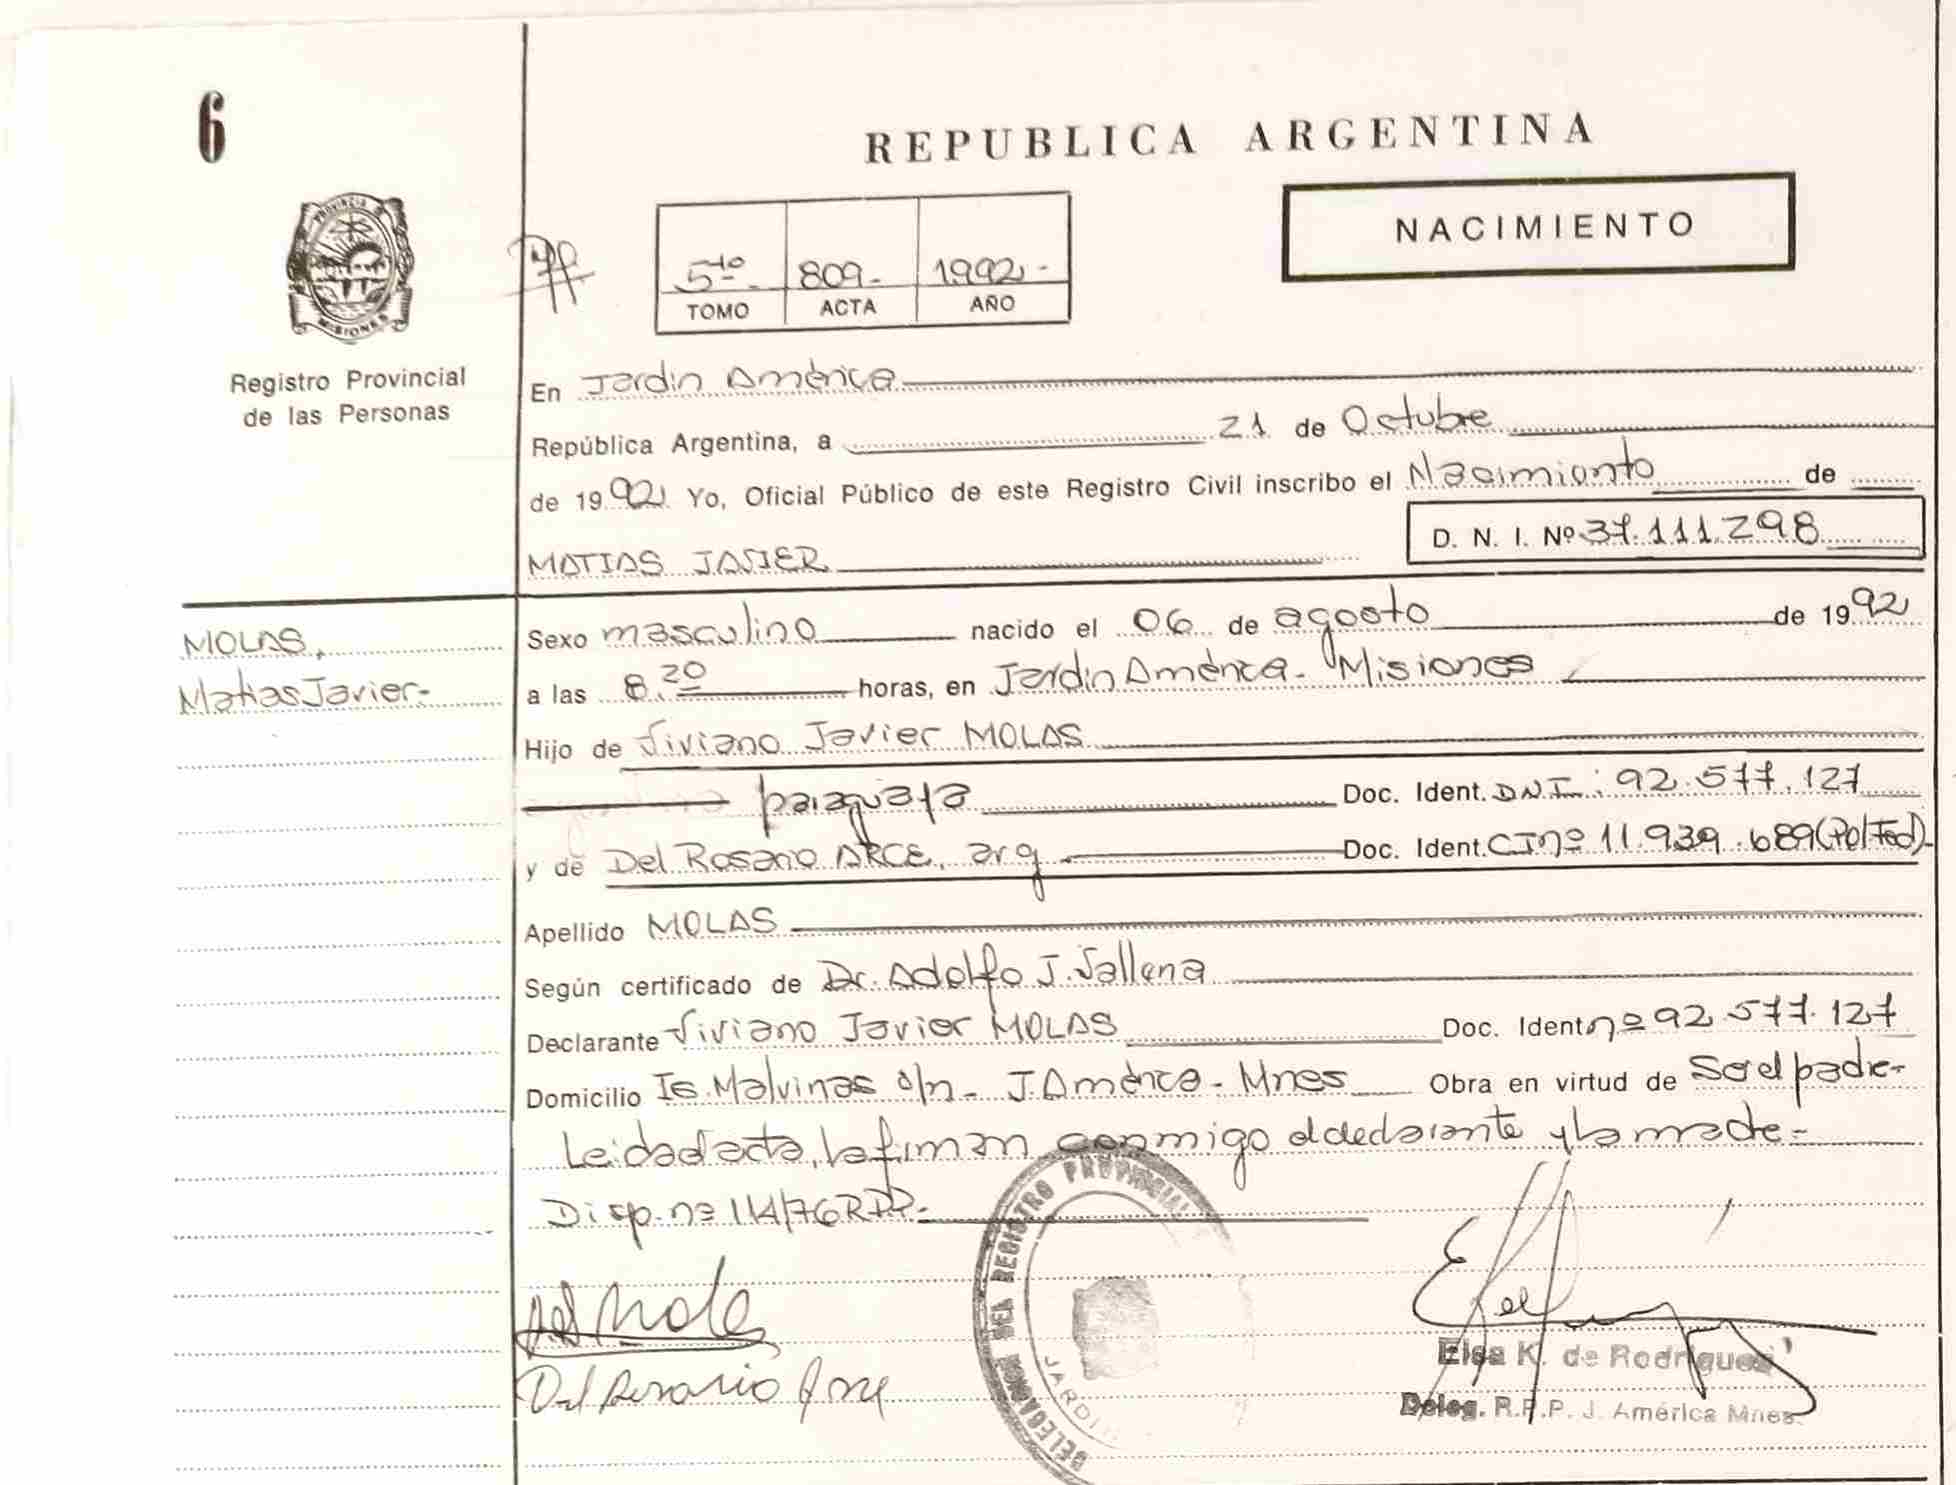 6
REPUBLICA ARGENTINA
NACIMIENTO
PROVINCIA DE
MISIONES
5to - 809- 1992 -
TOMO ACTA AÑO
Registro Provincial
de las Personas
En Jardin América
República Argentina, a 21 de Octubre
de 1992 Yo, Oficial Público de este Registro Civil inscribo el Nacimiento de
D. N. I. Nº 37.111.298
MATIAS JAVIER
MOLAS,
Matias Javier-
Sexo masculino nacido el 06 de agosto de 1992
a las 8.20 horas, en Jardin América - Misiones
Hijo de Viviano Javier MOLAS
paraguaya Doc. Ident. DNI: 92.577.127
y de Del Rosario ARCE, arg Doc. Ident. CI nº 11.939.689 (Pol Fed)-
Apellido MOLAS
Según certificado de Dr. Adolfo J. Vallena
Declarante Viviano Javier MOLAS Doc. Ident nº 92 577.127
Domicilio Is. Malvinas s/n - J. América - Mnes Obra en virtud de Ser el padre-
Leida el acta, la firman conmigo el declarante y la madre-
Disp. nº 114/76 RPP-
DELEGACION DEL REGISTRO PROVINCIAL
JARDIN
Del Rosario Arce
Elsa K. de Rodriguez
Deleg. R.P.P. J. América Mnes.